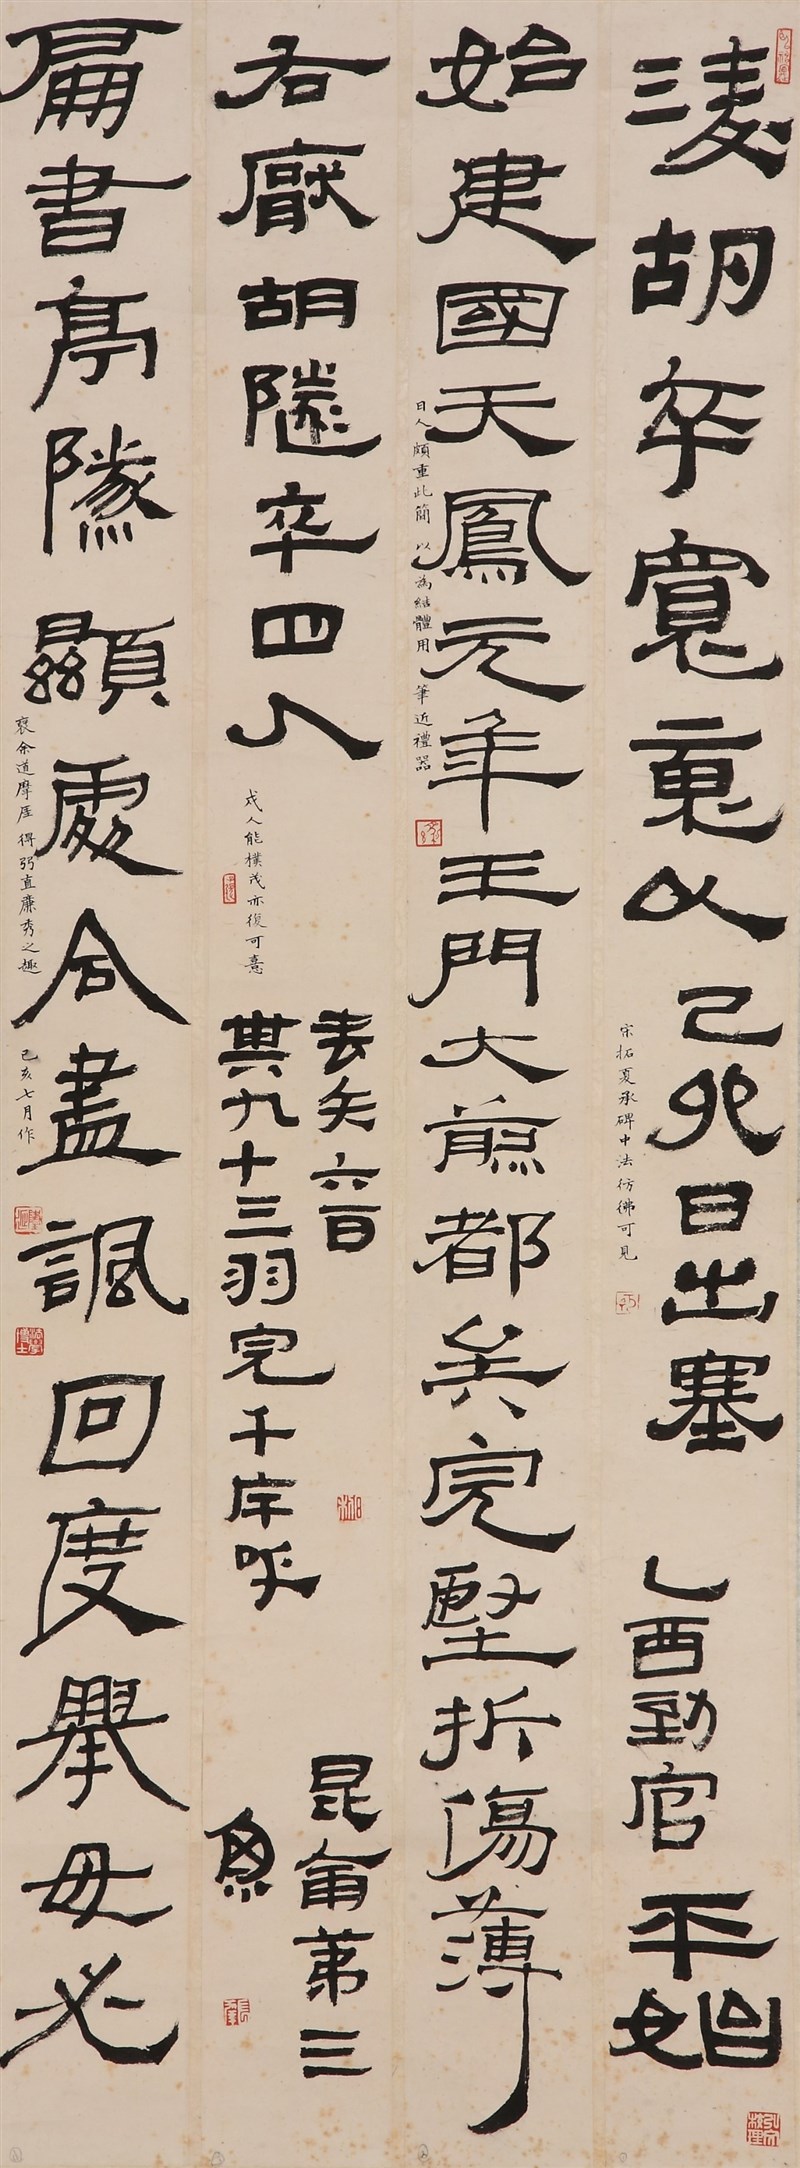 淩胡卒寬重以己卯日出塞
乙酉到官
平始
宋拓夏承碑中法仿彿可見
始建國天鳳元年玉門大煎都兵完堅折傷薄
日人頗重此簡以為結體用筆近禮器
右厭胡隧卒四人
戍人能樸茂亦復可憙
去矢六百
其九十三羽完干庌呼
昆侖第三
魚
扁書亭隧顯處令盡諷
回度舉毋必
裒余道摩厓得勁直廉秀之趣
己亥七月作